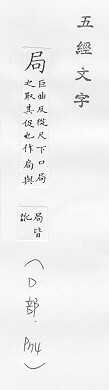 五經文字
局
巨曲反從尺下口局
之取其促也作扃與
局皆
訛
(口部.
P74)